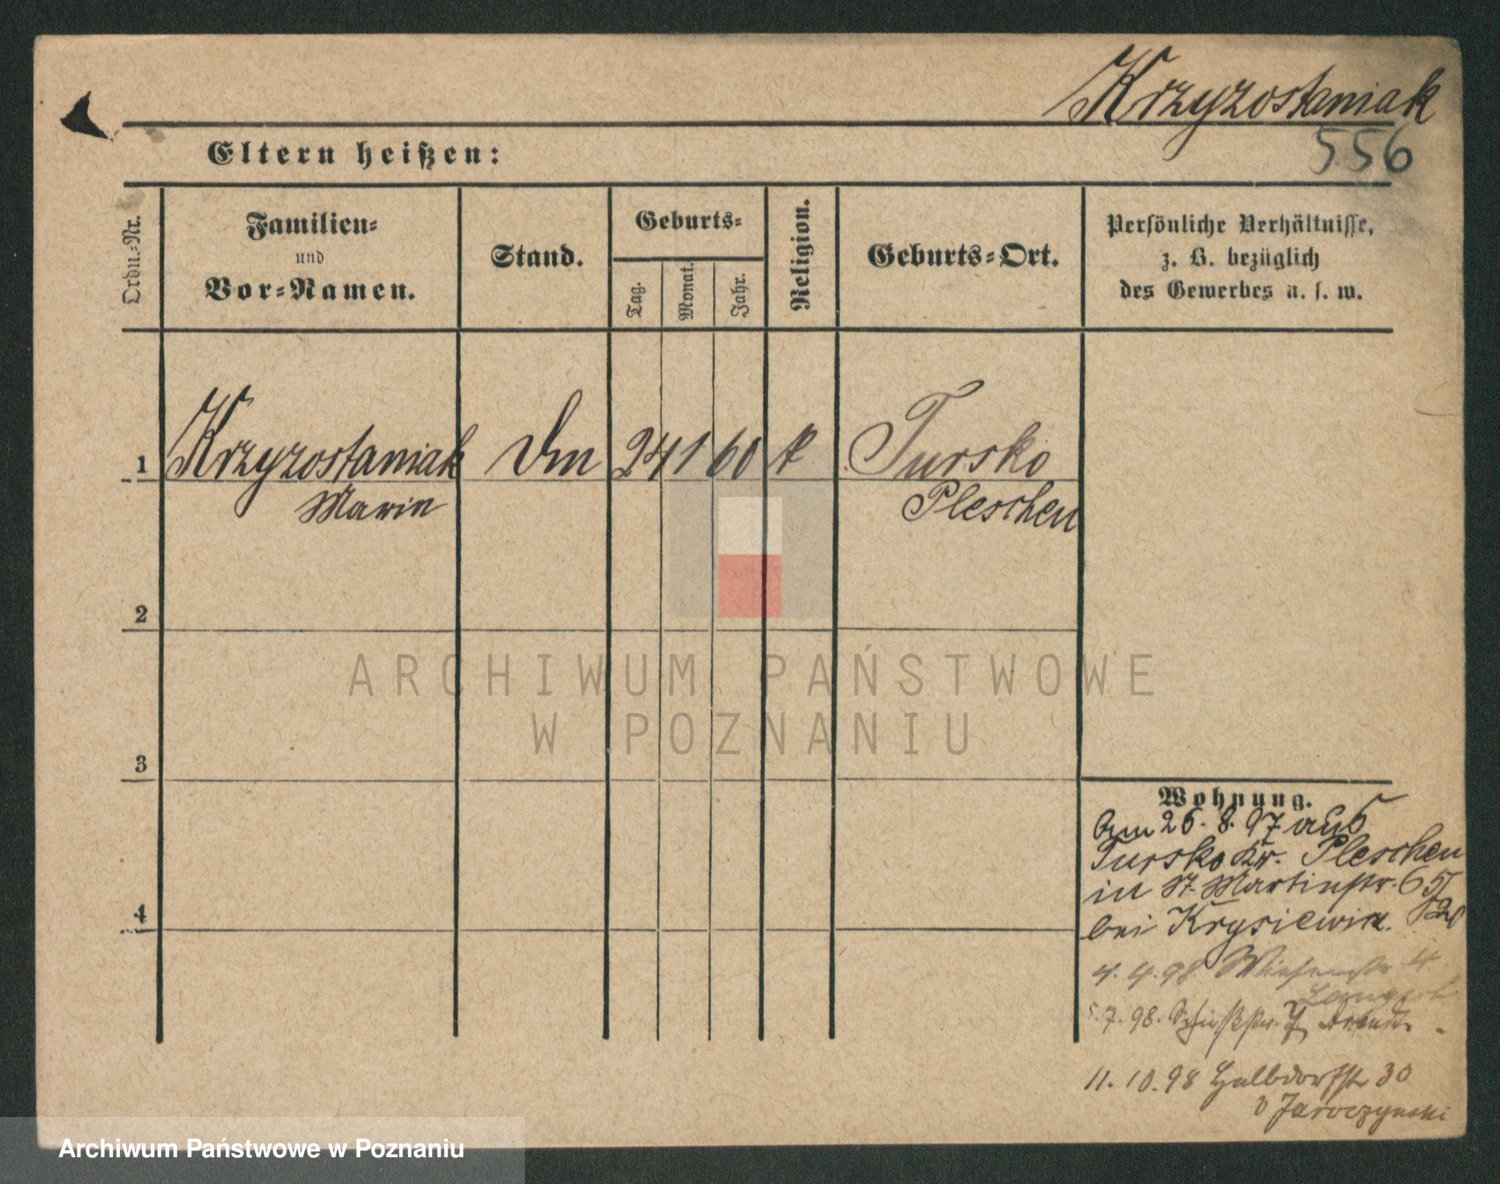 Krzyzostaniak
556
Eltern heißen:
Ordn.-Nr.
Familien-
und
Vor-Namen.
Stand.
Geburts-
Tag.
Monat.
Jahr.
Religion.
Geburts-Ort.
Persönliche Verhältnisse,
z. B. bezüglich
des Gewerbes u. s. w.
1 Krzyzostaniak 24 1 60 k Tursko
Marie Pleschen
2
3
4
ARCHIWUM PAŃSTWOWE
W POZNANIU
Wohnung.
Am 26. 8. 97 aus
Tursko Kr. Pleschen
in St. Martinstr. 65
bei
4. 4. 98 Wiesenstr 4
5. 7. 98. Schießstr. 7
11. 10. 98 Halbdorfstr 30
b Jaroczynski
Archiwum Państwowe w Poznaniu